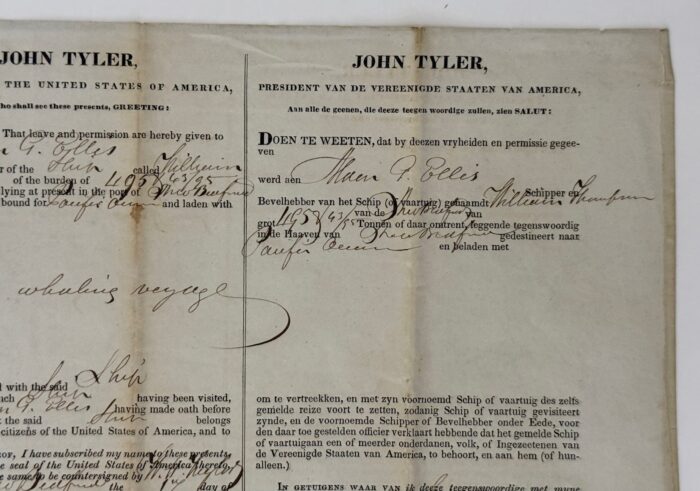 JOHN TYLER,
THE UNITED STATES OF AMERICA,
ho shall see these presents, GREETING:
That leave and permission are hereby given to
G. Ellis
er of the Ship called William
of the burden of 495 43/95
lying at present in the port of New Bedford
bound for Pacific Ocean and laden with
whaling voyage
d with the said Ship
ch Ship having been visited,
G. Ellis having made oath before
t the said Ship belongs
citizens of the United States of America, and to
OF, I have subscribed my name to these presents,
he seal of the United States of America thereto
same to be countersigned by
the day of
JOHN TYLER,
PRESIDENT VAN DE VEREENIGDE STAATEN VAN AMERICA,
Aan alle de geenen, die deeze teegen woordige zullen, zien SALUT:
DOEN TE WEETEN, dat by deezen vryheiden en permissie gegee-
ven
werd aen G. Ellis
Schipper en
Bevelhebber van het Schip (of vaartuig) genaamdt William Thompson
van de New Bedford van
grot 495 43/95 Tonnen of daar omtrent, leggende tegenswoordig
in de Haaven van New Bedford gedestineert naar
Pacific Ocean en beladen met
om te vertreekken, en met zyn voornoemd Schip of vaartuig des zelfs
gemelde reize voort te zetten, zodanig Schip of vaartuig gevisiteert
zynde, en de voornoemde Schipper of Bevelhebber onder Eede, voor
den daar toe gestelden officier verklaart hebbende dat het gemelde Schip
of vaartuigaan een of meerder onderdanen, volk, of Ingezeetenen van
de Vereenigde Staaten van America, to behoort, en aan hem (of hun-
alleen.)
IN GETUIGENS WAAR VAN ik deeze teegenswoordige met myne